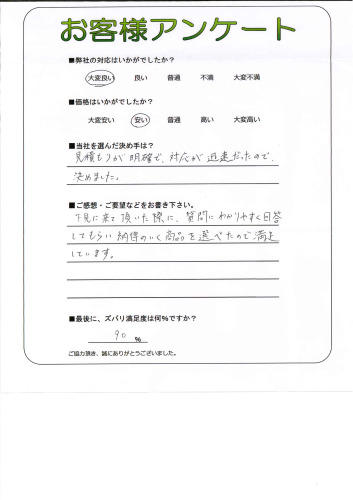 お客様アンケート
■弊社の対応はいかがでしたか？
大変良い 良い 普通 不満 大変不満
■価格はいかがでしたか？
大変安い 安い 普通 高い 大変高い
■当社を選んだ決め手は？
見積もりが明確で、対応が迅速だったので、
決めました。
■ご感想・ご要望などをお書き下さい。
下見に来て頂いた際に、質問にわかりやすく回答
してもらい納得のいく商品を選べたので満足
しています。
■最後に、ズバリ満足度は何％ですか？
90 %
ご協力頂き、誠にありがとうございました。